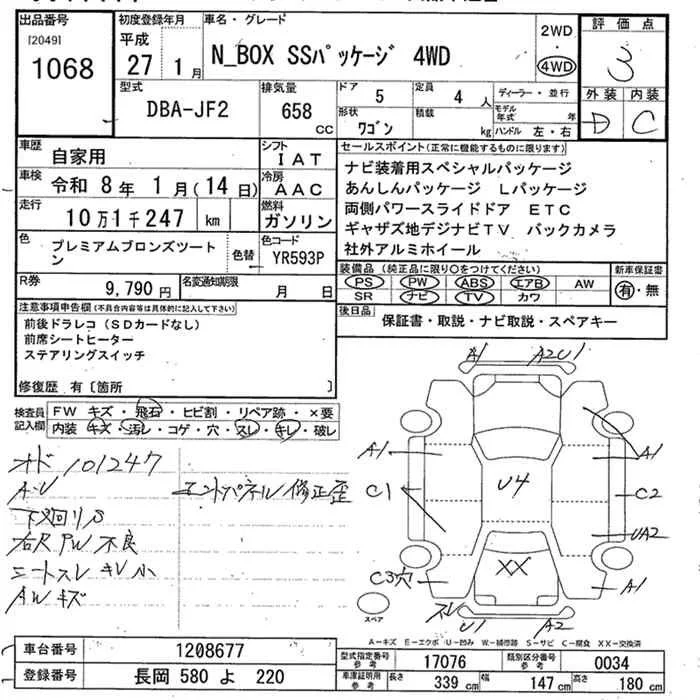 出品番号
[2049]
1068
初度登録年月
平成
27 1月
車名・グレード
N_BOX SSパッケージ 4WD
2WD
・
4WD
評価点
3
外装 内装
D C
型式
DBA-JF2
排気量
658
CC
ドア
5
定員
4 人
ディーラー・並行
形状
ワゴン
積載
kg
モデル年式 年
ハンドル 左・右
車歴
自家用
シフト
IAT
車検
令和 8年 1月(14日)
冷房
AAC
走行
10万1千247 km
燃料
ガソリン
色
プレミアムブロンズツートン
色替
色コード
YR593P
R券
9,790円
名変通知期限
月 日
セールスポイント(正常に機能するものに限ります)
ナビ装着用スペシャルパッケージ
あんしんパッケージ Lパッケージ
両側パワースライドドア ETC
ギャザズ地デジナビTV バックカメラ
社外アルミホイール
装備品 (純正品に限り○をつけてください)
PS PW ABS エアB AW
SR ナビ TV カワ
新車保証書
有・無
後日品
保証書・取説・ナビ取説・スペアキー
注意事項申告欄(不具合内容等は具体的に記入して下さい)
前後ドラレコ(SDカードなし)
前席シートヒーター
ステアリングスイッチ
修復歴 有〔箇所 〕
検査員記入欄
FW キズ・飛石・ヒビ割・リペア跡・×要
内装 キズ・汚レ・コゲ・穴・スレ・キレ・破レ
オド 101247
A・U
エンドパネル修正歪
下廻りS
右尺PW不良
シートスレ キレ小
AWキズ
A1 A2U1
A1 A1
C1 U4 C2
UA2
C3穴 XX A1
スレ
U1 A2
スペア
A-キズ E-エクボ U-凹ミ W-補修跡 S-サビ C-腐食 XX-交換済
車台番号
1208677
登録番号
長岡 580 よ 220
型式指定番号
参考
17076
類別区分番号
参考
0034
車庫証明用
参考
長さ
339 cm
幅
147 cm
高さ
180 cm